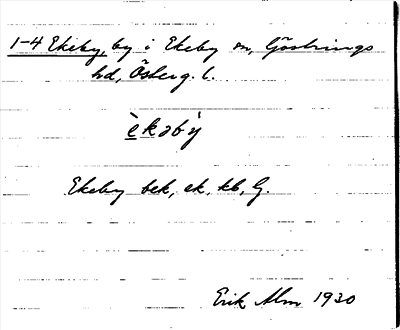 1-4 Ekeby, by i Ekeby sn, Göstrings
hd, Österg. l.
è̱kəbý
Ekeby bek, ek, kb, G.
Erik Alm 1930